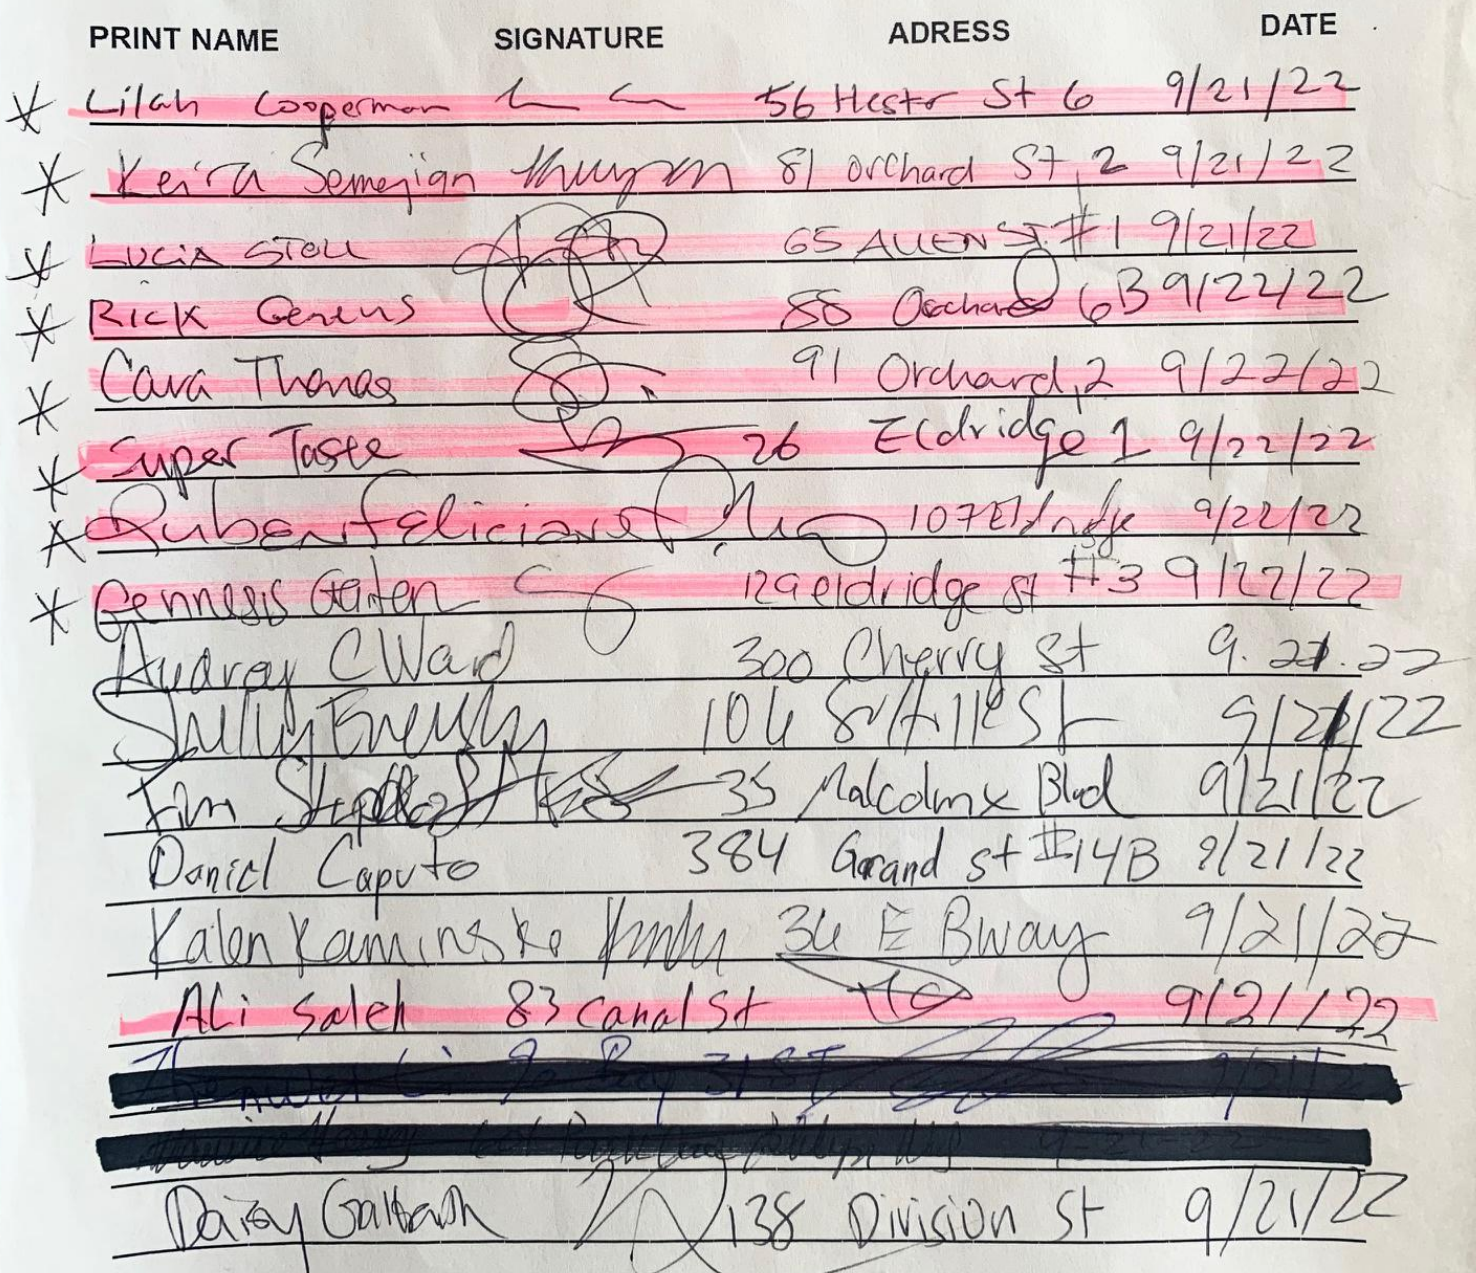 PRINT NAME SIGNATURE ADRESS DATE
Lilah Cooperman 56 Hestr St 6 9/21/22
Keira Semerjian 81 orchard St, 2 9/21/22
LUCIA STOLL 65 ALLEN ST #1 9/21/22
Rick 88 Orchard 6B 9/22/22
Cara Thomas 91 Orchard, 2 9/22/22
Super Taste 26 Eldridge 1 9/22/22
Ruben Feliciano 107 Eldridge 9/22/22
Gennesis 129 eldridge st #3 9/22/22
Audray C Ward 300 Cherry St 9.21.22
St 9/21/22
Tim 35 Malcolm x Blvd 9/21/22
Daniel Caputo 384 Grand st #14B 9/21/22
Kalen Kaminski 36 E Bway 9/21/22
Ali Saleh 83 Canal St 9/21/22
Daisy Galbraith 138 Division St 9/21/22